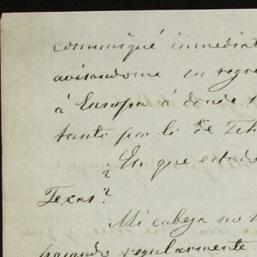 comuniqué immediat
avisandome su regre
á Europa á donde
tanto por lo de Teh
¿En que estado
Texas?
Mi cabeza no
pasando regularmente.